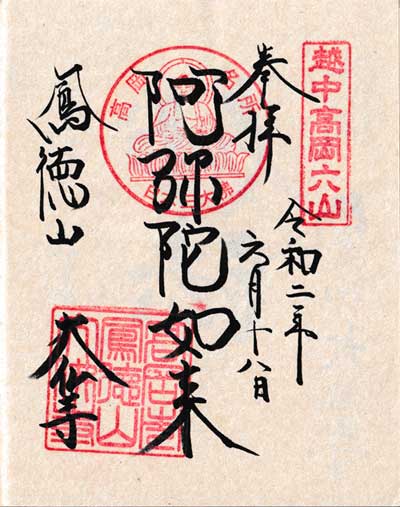 越中高岡六山
奉拝
令和二年
六月十八日
阿弥陀如来
鳳徳山
大佛寺